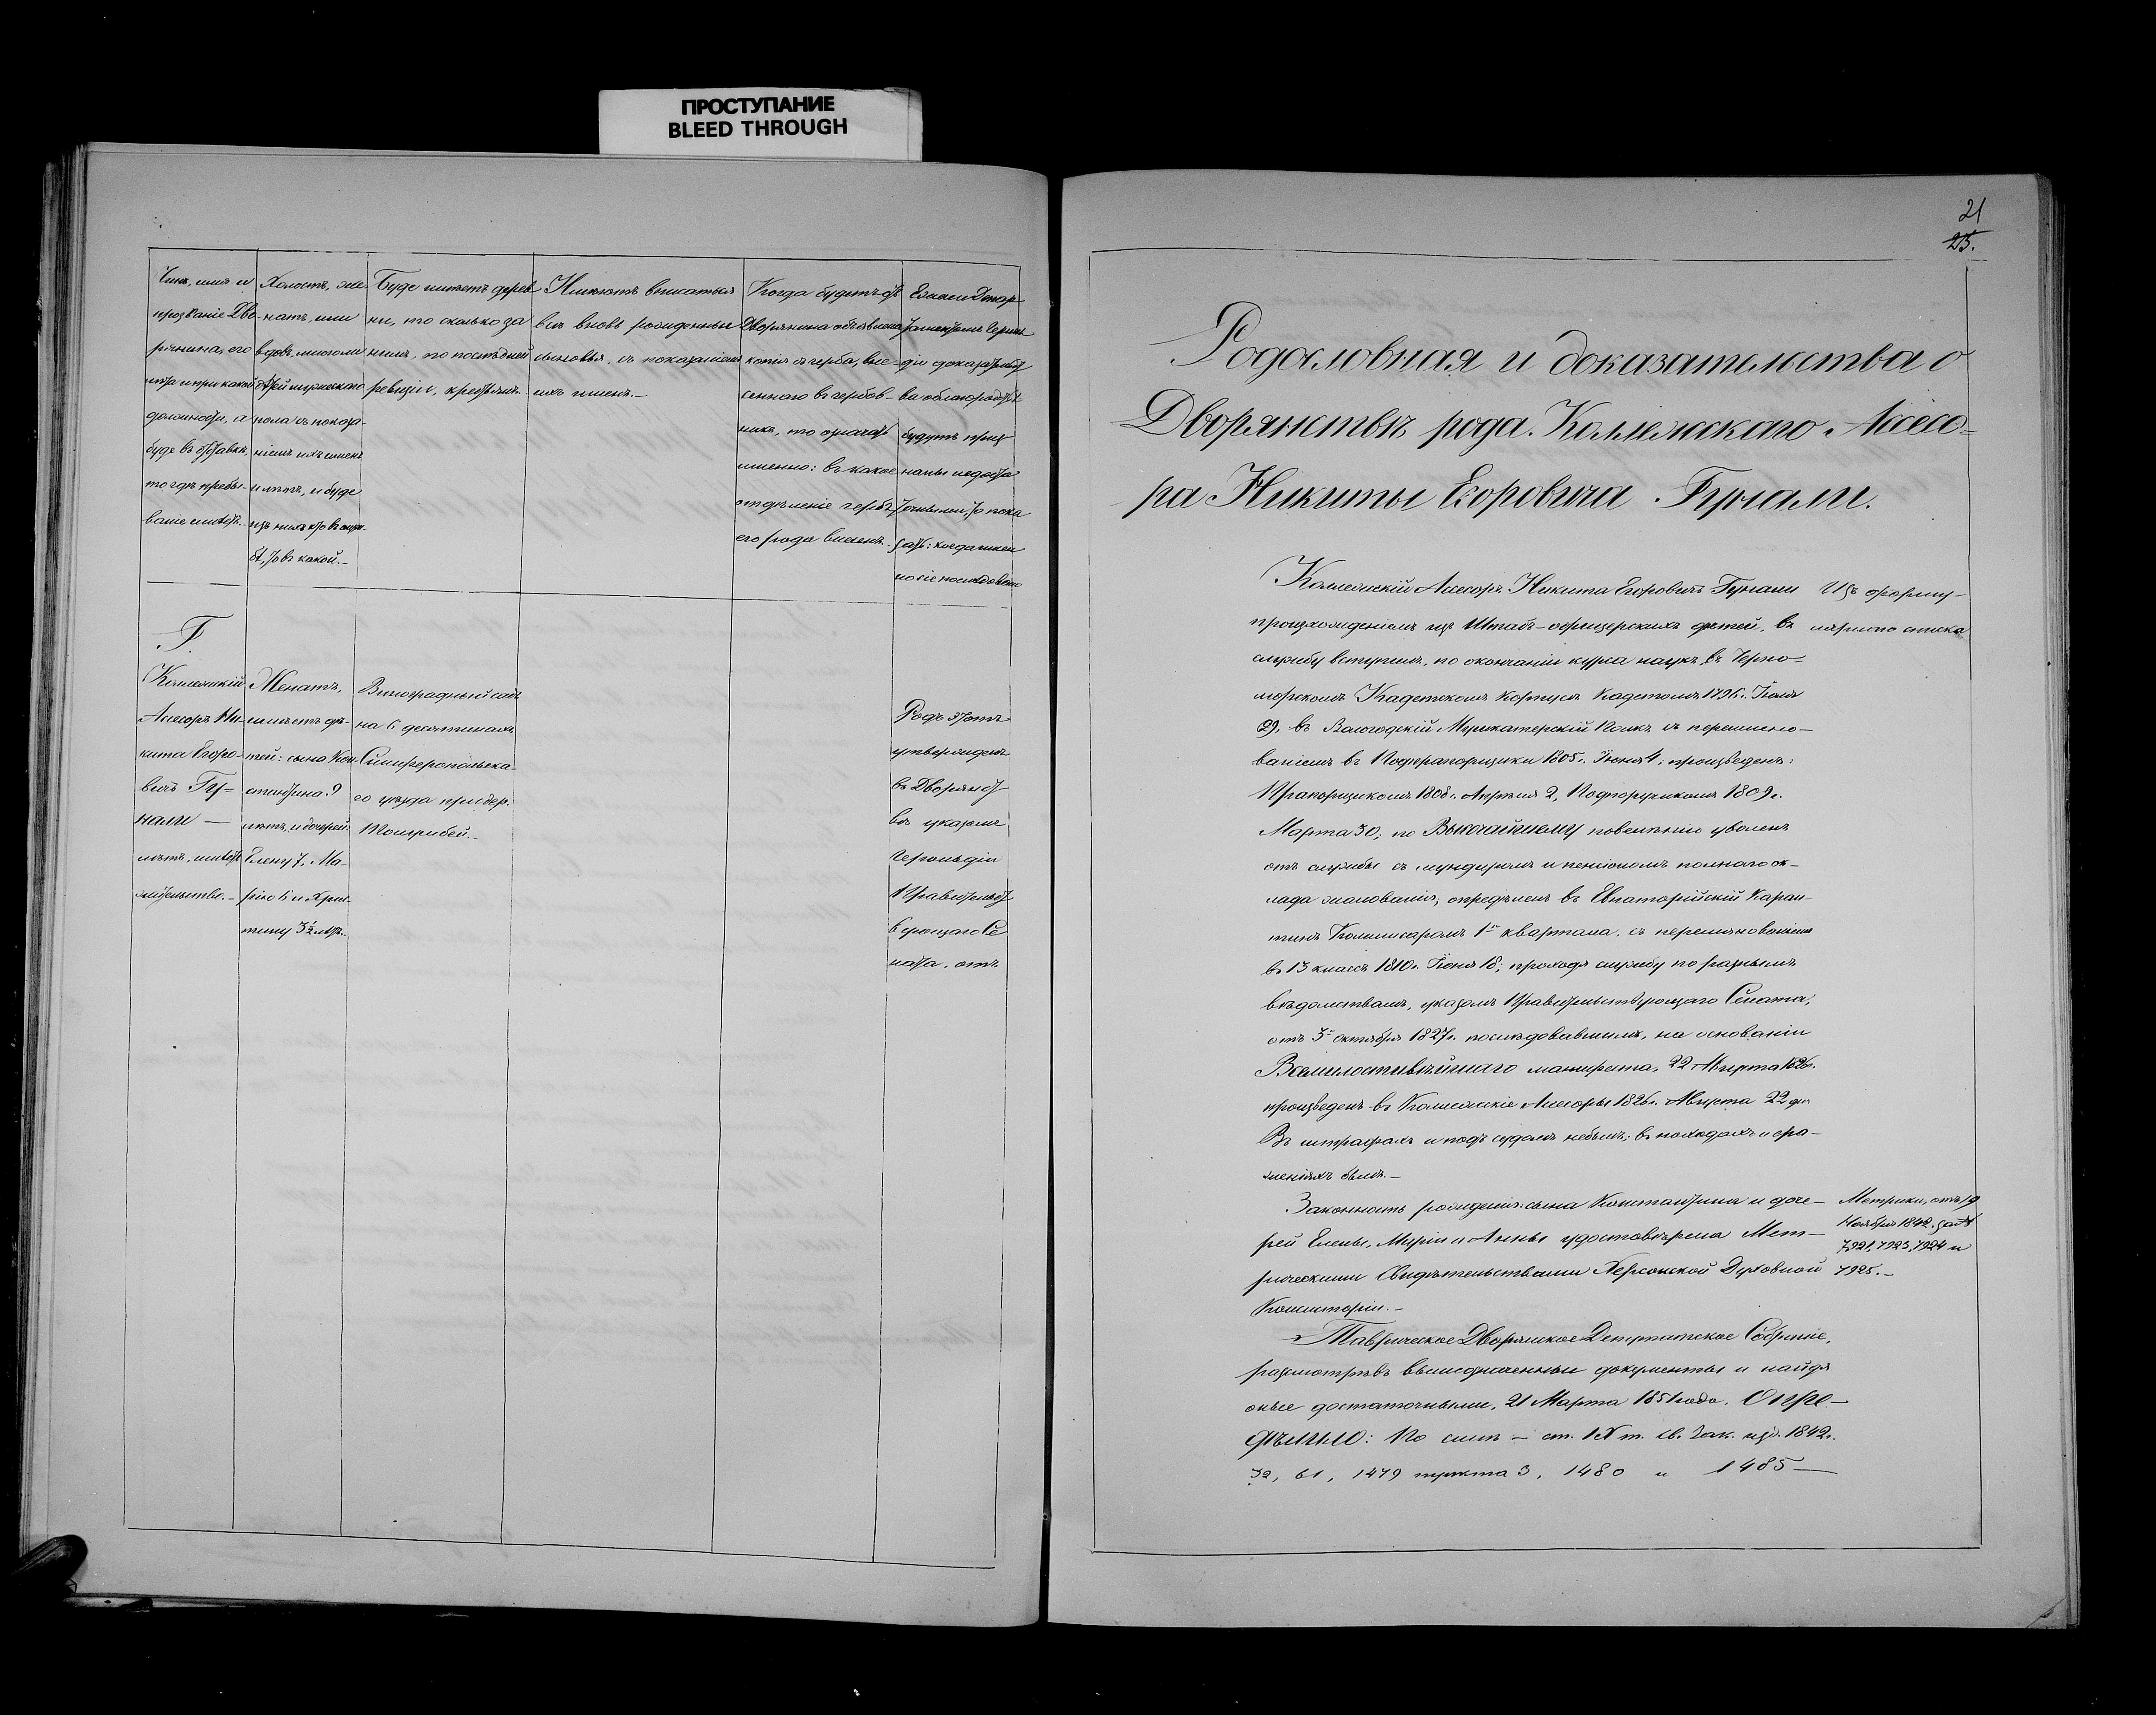 ПРОСТУПАНИЕ
BLEED THROUGH
Чинъ, имя и
прозваніе Дво-
рянина, его
лѣта и при какой
должности, а
буде въ отставкѣ,
то гдѣ пребы-
ваніе имѣетъ.
Холостъ, же-
натъ, или
вдовъ, многоли
дѣтей мужескаго
пола съ показа-
ніемъ ихъ именъ
и лѣтъ, и буде
изъ нихъ кто въ служ-
бѣ, то въ какой.-
Буде имѣетъ дерев-
ни, то сколько за
нимъ, по послѣдней
ревизіи, крестьянъ.
Имѣютъ вписаться
вновь рожденные
сыновья, съ показаніемъ
ихъ именъ.-
Когда будетъ отъ
Дворянина объявлена
копія съ герба, вне-
сеннаго въ гербов-
никъ, то означать
именно: въ какое
отдѣленіе гербъ
его рода внесенъ.-
Если и Депар-
таментомъ Героль-
діи доказательст-
ва о благородствѣ
будутъ приз
наны недоста
точными, то пока
зать: когда имен
но сіе послѣдовало
Г.
Коллежскій
Асесоръ Ни-
кита Егоро-
вичъ Гу-
нали —
лѣтъ, имѣетъ
жительство.-
Женатъ,
имѣетъ дѣ-
тей: сына Кон-
стантина 9
лѣтъ, и дочерей
Елену 7, Ма-
рію 6 и Хрис-
тину 3½ лѣтъ.
Виноградный садъ
на 6 десятинахъ
Симферопольска-
го уѣзда при дер.
Родъ этотъ
утвержденъ
въ Дворянст
вѣ указомъ
Герольдіи
Правительст
вующаго Се
ната, отъ
21
25.
Родословная и доказательства о
Дворянствѣ рода Коллежскаго Асесо-
ра Никиты Егоровича Гунали.
Коллежскій Асесоръ Никита Егоровичъ Гунали
происхожденіемъ изъ Штабъ-офицерскихъ дѣтей, въ
службу вступилъ, по окончаніи курса наукъ, въ Черно-
морскомъ Кадетскомъ Корпусѣ Кадетомъ 1796 г. Іюля
29, въ Вологодскій Мушкатерскій Полкъ съ переимено-
ваніемъ въ Подпрапорщики 1805 г. Іюня 4; произведенъ:
Прапорщикомъ 1808 г. Апрѣля 2, Подпоручикомъ 1809 г.
Марта 30; по Высочайшему повелѣнію уволенъ
отъ службы съ мундиромъ и пенсіономъ полнаго ок-
лада жалованія; опредѣленъ въ Евпаторійскій Каран-
тинъ Коммисаромъ 1го квартала, съ переименованіемъ
въ 13 классъ 1810 г. Іюня 18; проходя службу по разнымъ
вѣдомствамъ, указомъ Правительствующаго Сената,
отъ 3го октября 1827 г. послѣдовавшимъ, на основаніи
Всемилостивѣйшаго манифеста, 22 Августа 1826 г.
произведенъ въ Коллежскіе Асесоры 1826 г. Августа 22 дня
Въ штрафахъ и подъ судомъ не былъ; въ походахъ и сра-
женіяхъ былъ.-
Изъ форму-
лярнаго списка
Законность рожденія: сына Константина и доче-
рей Елены, Маріи и Анны удостовѣрена Мет-
рическими Свидѣтельствами Херсонской Духовной
Консисторіи.-
Метрики, отъ 19
Ноября 1842 г. за №
7921, 7923, 7924 и
7925.-
Таврическое Дворянское Депутатское Собраніе,
разсмотрѣвъ вышеозначенные документы и найдя
онѣе достаточными, 21 Марта 1851 года. Опре-
дѣлило: По силѣ — ст. IX т. Св. Зак. изд. 1842 г.
32, 61, 1479 пункта 3, 1480 и 1485 —